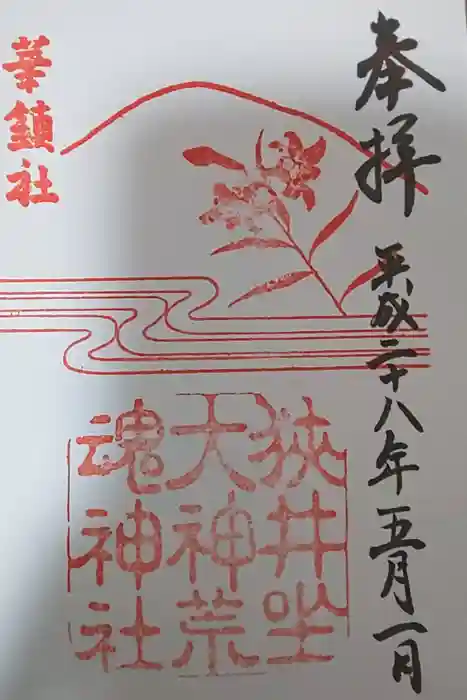 奉拝
平成二十八年五月一日
華鎮社
狭井坐
大神荒
魂神社